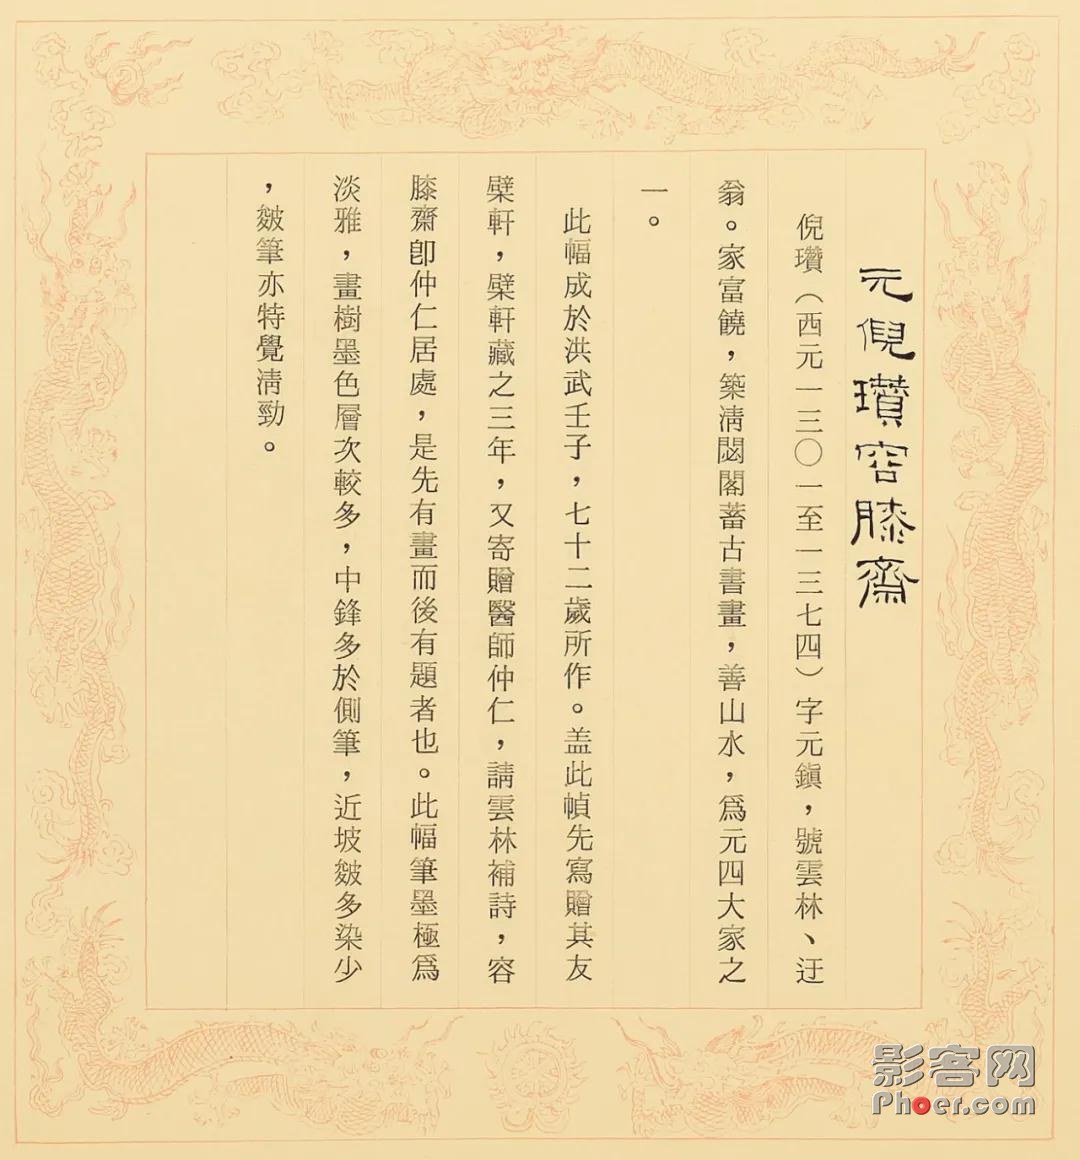 元倪瓚容膝齋
倪瓚（西元一三〇一至一三七四）字元鎭，號雲林、迂
翁。家富饒，築淸閟閣蓄古書畫，善山水，爲元四大家之
一。
此幅成於洪武壬子，七十二歲所作。盖此幀先寫贈其友
檗軒，檗軒藏之三年，又寄贈醫師仲仁，請雲林補詩，容
膝齋卽仲仁居處，是先有畫而後有題者也。此幅筆墨極爲
淡雅，畫樹墨色層次較多，中鋒多於側筆，近坡皴多染少
，皴筆亦特覺淸勁。
影客网
Phoer.com